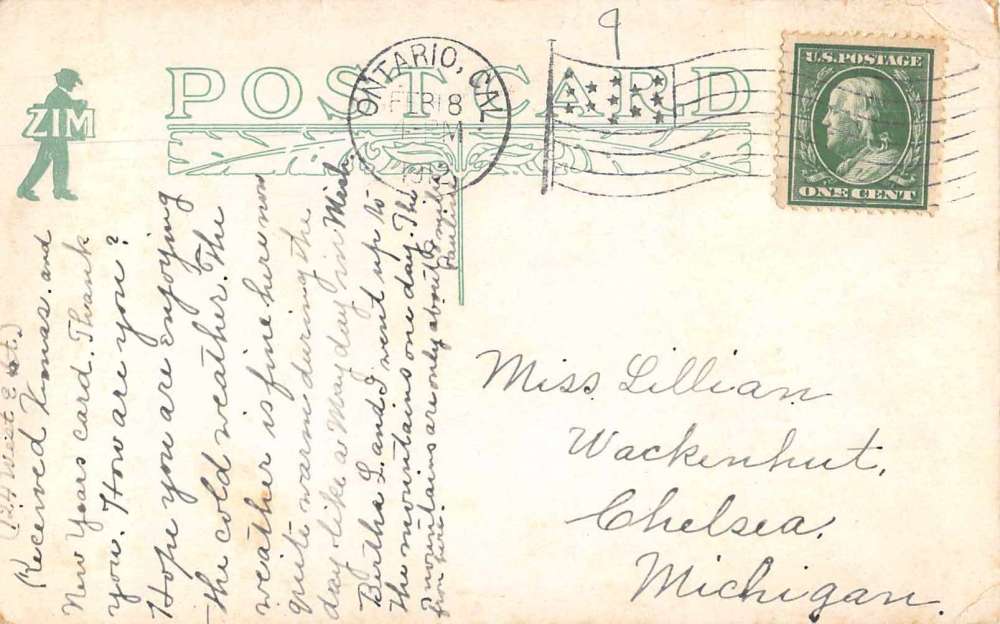 9
ZIM
POST CARD
ONTARIO, CAL
FEB 18
U.S. POSTAGE
ONE CENT
(124 West E St.)
Received Xmas. and
New Years card. Thank
you. How are you?
Hope you are enjoying
the cold weather. The
weather is fine here now
quite warm during the
day, like a May day in Mich.
Bertha L. and I went up to
the mountains one day. The
mountains are only about
from here.
Miss Lillian
Wackenhut,
Chelsea,
Michigan.